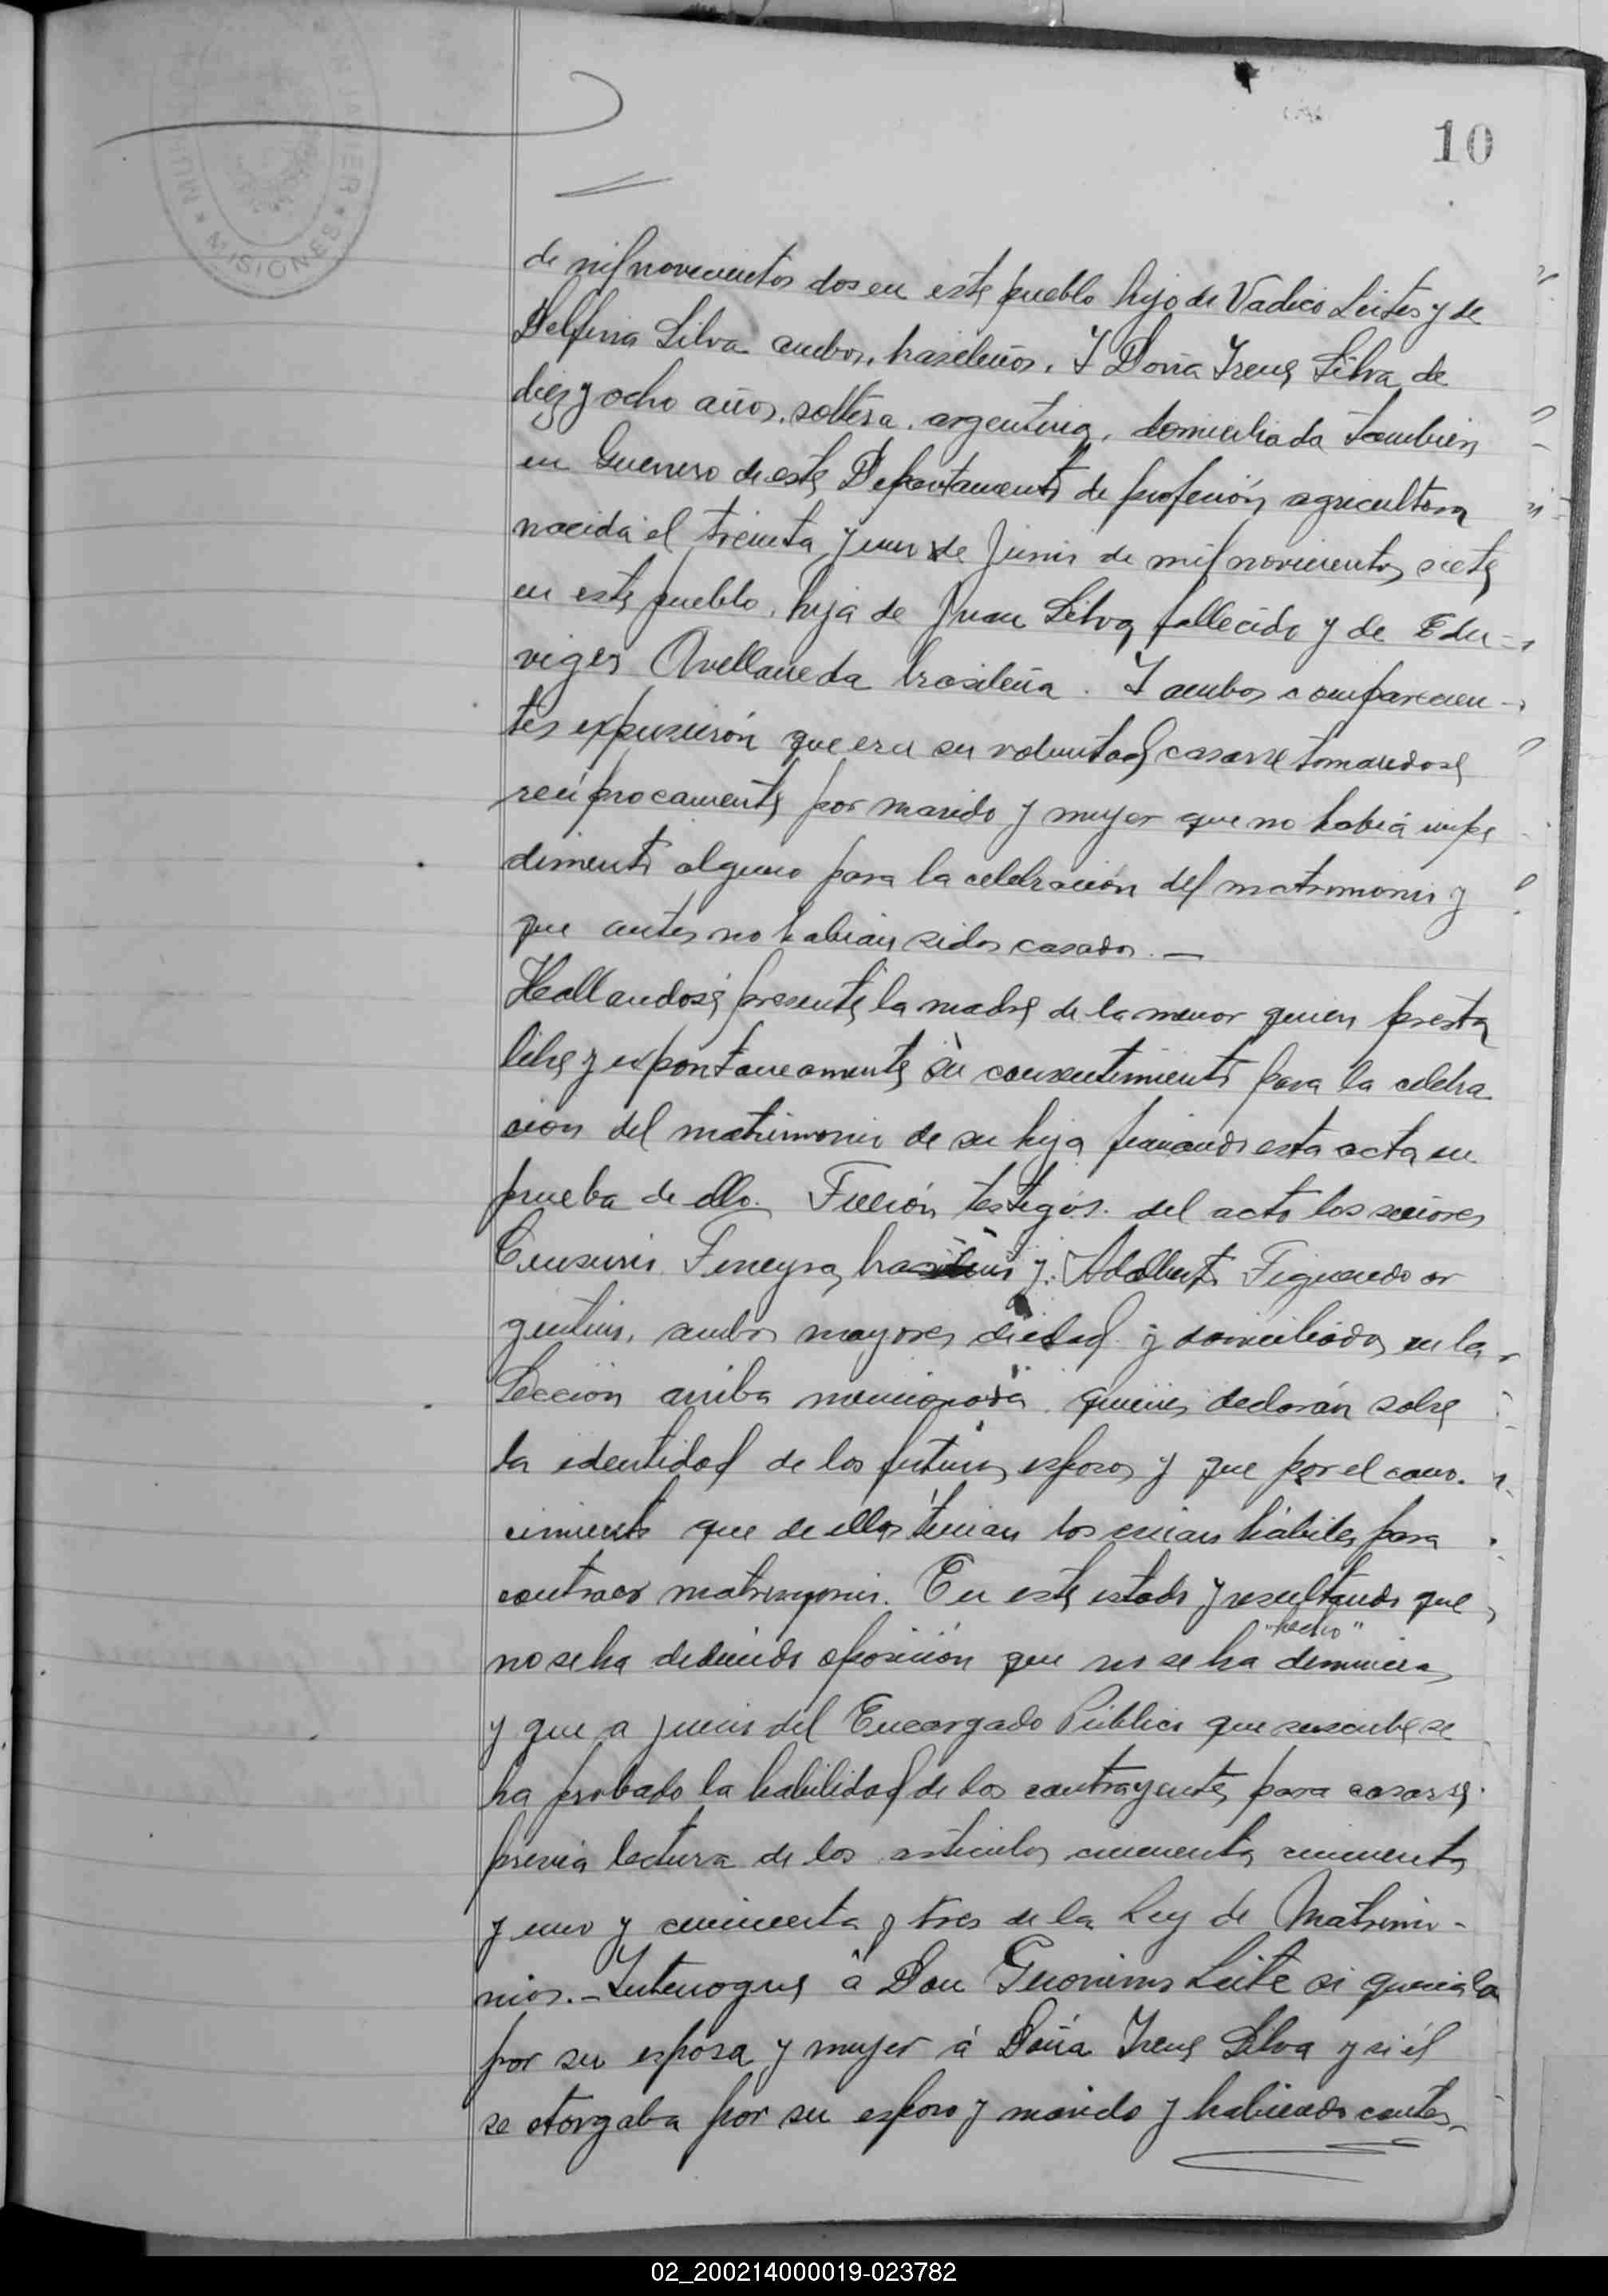 10
MISIONES
de mil novecientos dos en este pueblo hijo de Vadico Leites y de
Delfina Silva ambos, brasileños. Y Doña Irene Silva de
diez y ocho años, soltera, argentina, domiciliada tambien
en Guerrero de este Departamento de profesión agricultora
nacida el treinta y uno de Junio de mil novecientos siete
en este pueblo, hija de Juan Silva, fallecido y de Edu-
viges Avellaneda brasileña. Y ambos comparecien-
tes expusierón que era su voluntad casarse tomandose
reciprocamente por marido y mujer que no había impe
dimento alguno para la celebración del matrimonio y
que antes no habian sidos casados. —
Hallandose presente la madre de la menor quien presta
libre y expontaneamente su consentimiento para la celebra
cion del matrimonio de su hija firmando esta acta en
prueba de ello. Fuerón testigos del acto los señores
Ferreyra, y Adalberto Figueredo ar
gentino, ambos mayores de edad y domiciliados en la
Sección arriba mencionada quienes declarán sobre
la identidad de los futuros esposos y que por el cono-
cimiento que de ellos tenian los creian hábiles para
contraer matrimonio. En este estado y resultando que
"hecho"
no se ha deducido oposición que no se ha denuncia
y que a juicio del Encargado Público que suscribe se
ha probado la habilidad de los contrayentes para casarse
previa lectura de los articulos cincuenta, cincuenta
y uno y cincuenta y tres de la Ley de Matrimo-
nios. - Interrogue á Don Geronimo Leite si queria
por su esposa y mujer á Doña Irene Silva y si él
se otorgaba por su esposo y marido y habiendo contes-
02_200214000019-023782